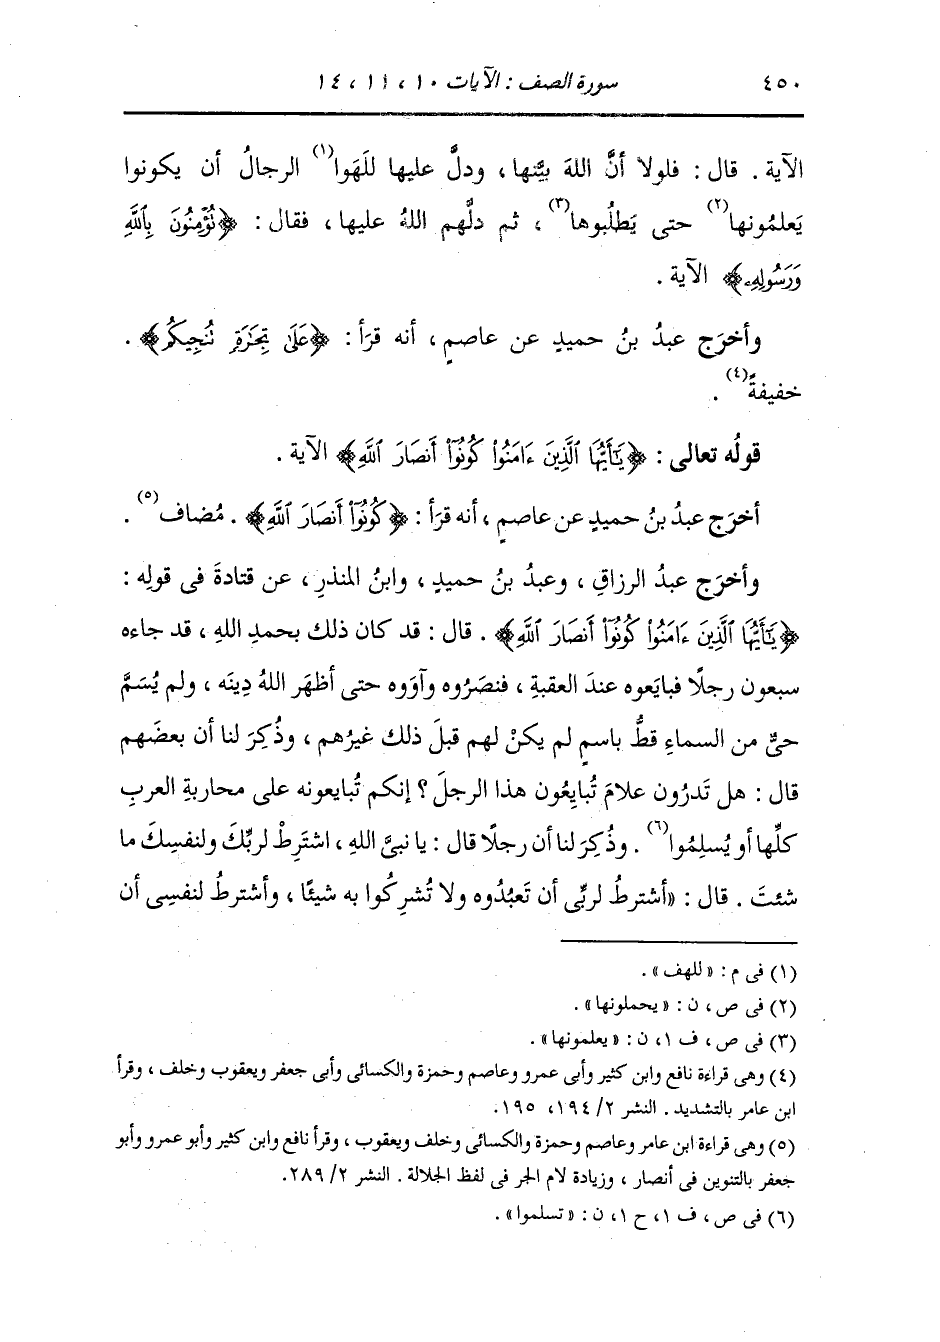 ٤٥٠ سورة الصف : الآيات ١٠ ، ١١ ، ١٤
الآية . قال : فلولا أنَّ اللهَ بيَّنها ، ودلَّ عليها للَهَوا(١) الرجالُ أن يكونوا
يَعلمُونها(٢) حتى يَطلُبوها(٣) ، ثم دلَّهم اللهُ عليها ، فقال : ﴿نُؤْمِنُونَ بِٱللَّهِ
وَرَسُولِهِۦ﴾ الآية .
وأخرَج عبدُ بنُ حميدٍ عن عاصمٍ ، أنه قرَأ : ﴿عَلَىٰ تِجَٰرَةٍ تُنجِيكُم﴾ .
خفيفةً(٤) .
قولُه تعالى : ﴿يَٰٓأَيُّهَا ٱلَّذِينَ ءَامَنُوا۟ كُونُوٓا۟ أَنصَارَ ٱللَّهِ﴾ الآية .
أخرَج عبدُ بنُ حميدٍ عن عاصمٍ ، أنه قرَأ : ﴿كُونُوٓا۟ أَنصَارَ ٱللَّهِ﴾ . مُضاف(٥) .
وأخرَج عبدُ الرزاقِ ، وعبدُ بنُ حميدٍ ، وابنُ المنذرِ ، عن قتادةَ فى قولِه :
﴿يَٰٓأَيُّهَا ٱلَّذِينَ ءَامَنُوا۟ كُونُوٓا۟ أَنصَارَ ٱللَّهِ﴾ . قال : قد كان ذلك بحمدِ اللهِ ، قد جاءه
سبعون رجلًا فبايَعوه عندَ العقبةِ ، فنصَرُوه وآوَوه حتى أظهَر اللهُ دِينَه ، ولم يُسَمَّ
حىٌّ من السماءِ قطُّ باسمٍ لم يكنْ لهم قبلَ ذلك غيرُهم ، وذُكِرَ لنا أن بعضَهم
قال : هل تَدرُون علامَ تُبايِعُون هذا الرجلَ ؟ إنكم تُبايعونه على محاربةِ العربِ
كلِّها أو يُسلِمُوا(٦) . وذُكِرَ لنا أن رجلًا قال : يا نبىَّ اللهِ ، اشتَرِطْ لربِّكَ ولنفسِكَ ما
شئتَ . قال : «أشترطُ لربِّى أن تَعبُدُوه ولا تُشرِكُوا به شيئًا ، وأشترطُ لنفسِى أن
(١) فى م : « للهف» .
(٢) فى ص ، ن : « يحملونها» .
(٣) فى ص ، ف ١، ن : « يعلمونها» .
(٤) وهى قراءة نافع وابن كثير وأبى عمرو وعاصم وحمزة والكسائى وأبى جعفر ويعقوب وخلف ، وقرأ
ابن عامر بالتشديد . النشر ٢/ ١٩٤، ١٩٥.
(٥) وهى قراءة ابن عامر وعاصم وحمزة والكسائى وخلف ويعقوب ، وقرأ نافع وابن كثير وأبو عمرو وأبو
جعفر بالتنوين فى أنصار ، وزيادة لام الجر فى لفظ الجلالة . النشر ٢/ ٢٨٩.
(٦) فى ص ، ف ١، ح ١، ن : « تسلموا» .